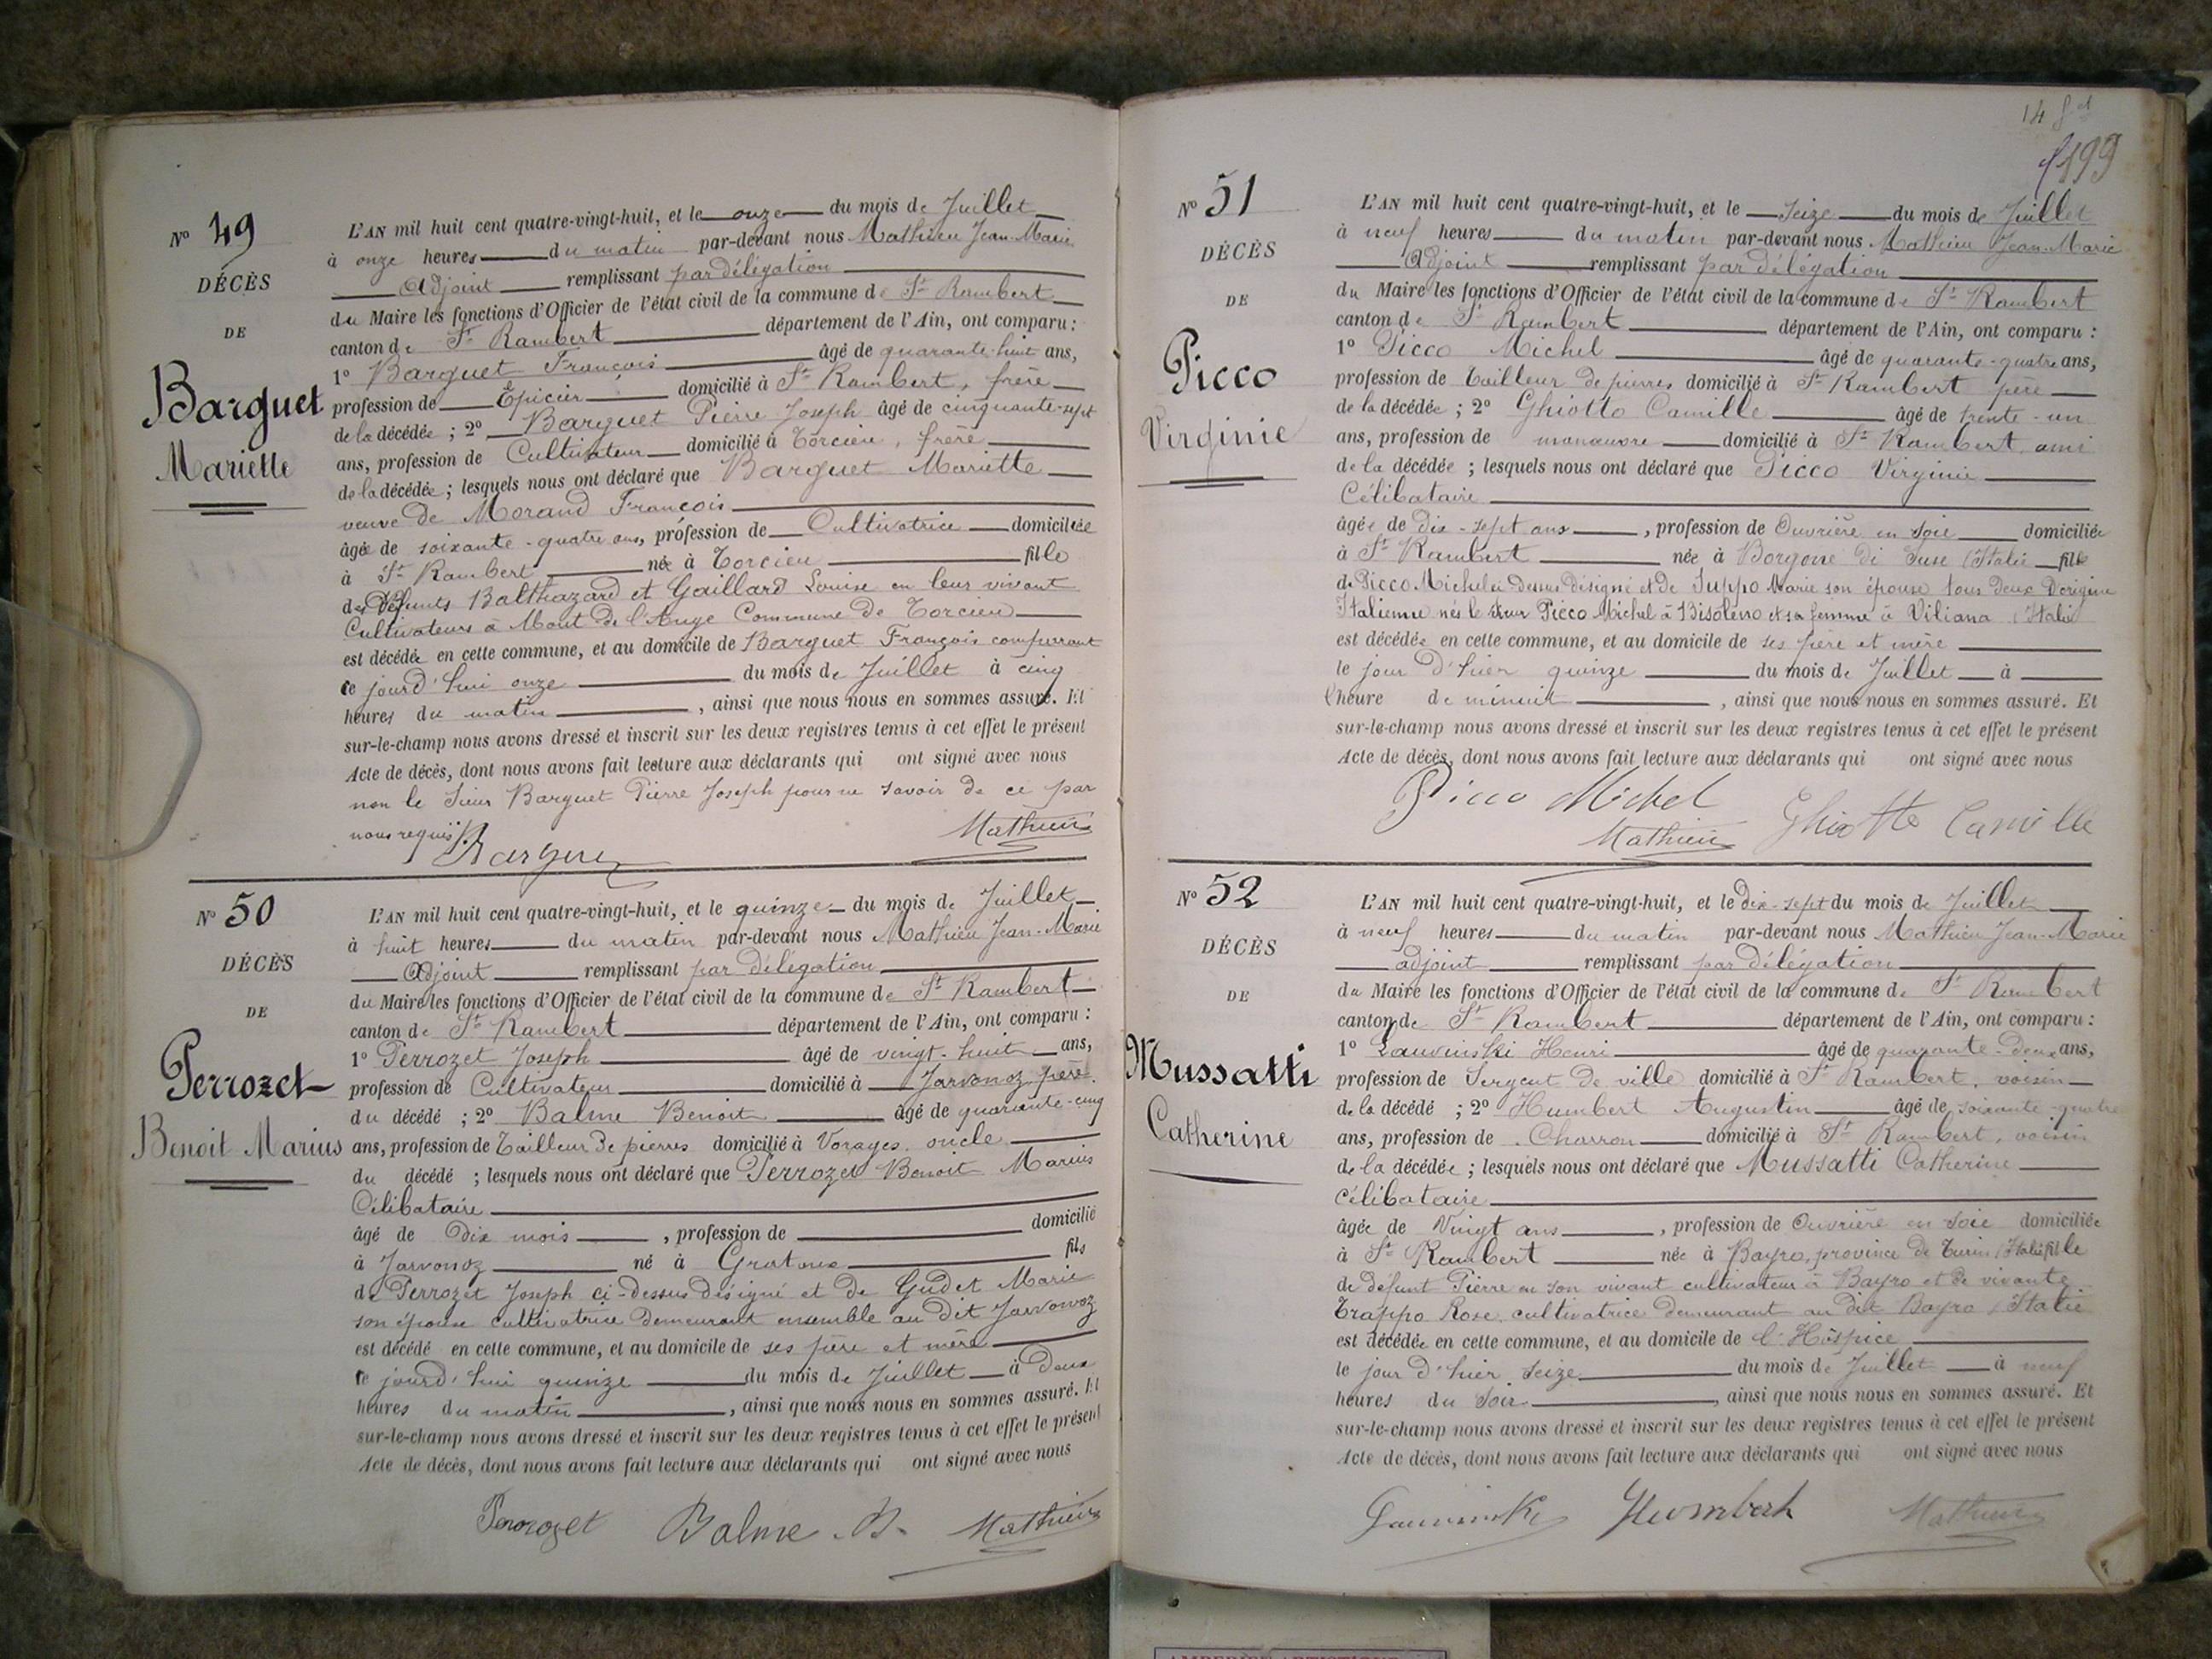 N° 49
DÉCÈS
DE
Barguet
Mariette
L'AN mil huit cent quatre-vingt-huit, et le onze du mois de Juillet
à onze heures du matin par-devant nous Mathieu Jean-Marie
Adjoint remplissant par délégation
du Maire les fonctions d'Officier de l'état civil de la commune de St Rambert
canton de St Rambert département de l'Ain, ont comparu :
1° Barguet François âgé de quarante-huit ans,
profession de Epicier domicilié à St Rambert, frère
de la décédée ; 2° Barguet Pierre Joseph âgé de cinquante-sept
ans, profession de Cultivateur domicilié à Torcieu, frère
de la décédée ; lesquels nous ont déclaré que Barguet Mariette
veuve de Morand François
âgée de soixante-quatre ans, profession de Cultivatrice domiciliée
à St Rambert née à Torcieu fille
des défunts Balthazard et Gaillard Louise en leur vivant
Cultivateurs à Mont de l'Ange Commune de Torcieu
est décédée en cette commune, et au domicile de Barguet François comparant
ce jourd'hui onze du mois de Juillet à cinq
heures du matin, ainsi que nous nous en sommes assuré. Et
sur-le-champ nous avons dressé et inscrit sur les deux registres tenus à cet effet le présent
Acte de décès, dont nous avons fait lecture aux déclarants qui ont signé avec nous
non le Sieur Barguet Pierre Joseph pour ne savoir de ce par
nous requis
Barguet Mathieu
N° 50
DÉCÈS
DE
Perrozet
Benoit Marius
L'AN mil huit cent quatre-vingt-huit, et le quinze du mois de Juillet
à huit heures du matin par-devant nous Mathieu Jean-Marie
Adjoint remplissant par délégation
du Maire les fonctions d'Officier de l'état civil de la commune de St Rambert
canton de St Rambert département de l'Ain, ont comparu :
1° Perrozet Joseph âgé de vingt-huit ans,
profession de Cultivateur domicilié à Javornoz père
du décédé ; 2° Balme Benoit âgé de quarante-cinq
ans, profession de Tailleur de pierres domicilié à Vorages oncle
du décédé ; lesquels nous ont déclaré que Perrozet Benoit Marius
Célibataire
âgé de dix mois, profession de domicilié
à Jarvonoz né à Gratoux fils
de Perrozet Joseph ci-dessus désigné et de Gudet Marie
son épouse cultivatrice demeurant ensemble au dit Jarvonoz
est décédé en cette commune, et au domicile de ses père et mère
ce jourd'hui quinze du mois de Juillet à deux
heures du matin, ainsi que nous nous en sommes assuré. Et
sur-le-champ nous avons dressé et inscrit sur les deux registres tenus à cet effet le présent
Acte de décès, dont nous avons fait lecture aux déclarants qui ont signé avec nous
Perrozet Balme B. Mathieu
199
N° 51
DÉCÈS
DE
Picco
Virginie
L'AN mil huit cent quatre-vingt-huit, et le Seize du mois de Juillet
à neuf heures du matin par-devant nous Mathieu Jean-Marie
Adjoint remplissant par délégation
du Maire les fonctions d'Officier de l'état civil de la commune de St Rambert
canton de St Rambert département de l'Ain, ont comparu :
1° Picco Michel âgé de quarante-quatre ans,
profession de Tailleur de pierres domicilié à St Rambert père
de la décédée ; 2° Ghiotto Camille âgé de trente-un
ans, profession de manœuvre domicilié à St Rambert ami
de la décédée ; lesquels nous ont déclaré que Picco Virginie
Célibataire
âgée de dix-sept ans, profession de Ouvrière en soie domiciliée
à St Rambert née à Borgone di Suse (Italie fille
de Picco Michel ci-dessus désigné et de Suppo Marie son épouse tous deux d'origine
Italienne nés le sieur Picco Michel à Bisoleno et sa femme à Viliana (Italie
est décédée en cette commune, et au domicile de ses père et mère
le jour d'hier quinze du mois de Juillet à
l'heure de minuit, ainsi que nous nous en sommes assuré. Et
sur-le-champ nous avons dressé et inscrit sur les deux registres tenus à cet effet le présent
Acte de décès, dont nous avons fait lecture aux déclarants qui ont signé avec nous
Picco Michel Mathieu Ghiotto Camille
N° 52
DÉCÈS
DE
Mussatti
Catherine
L'AN mil huit cent quatre-vingt-huit, et le dix-sept du mois de Juillet
à neuf heures du matin par-devant nous Mathieu Jean-Marie
adjoint remplissant par délégation
du Maire les fonctions d'Officier de l'état civil de la commune de St Rambert
canton de St Rambert département de l'Ain, ont comparu :
1° Lauvinski Henri âgé de quarante-deux ans,
profession de Sergent de ville domicilié à St Rambert, voisin
de la décédé ; 2° Humbert Augustin âgé de soixante-quatre
ans, profession de Charron domicilié à St Rambert, voisin
de la décédée ; lesquels nous ont déclaré que Mussatti Catherine
célibataire
âgée de Vingt ans, profession de Ouvrière en soie domiciliée
à St Rambert née à Bayro, province de Turin (Italie fille
de défunt Pierre en son vivant cultivateur à Bayro et de vivante
Trappo Rose, cultivatrice demeurant au dit Bayro (Italie
est décédée en cette commune, et au domicile de l'Hospice
le jour d'hier Seize du mois de Juillet à neuf
heures du soir, ainsi que nous nous en sommes assuré. Et
sur-le-champ nous avons dressé et inscrit sur les deux registres tenus à cet effet le présent
Acte de décès, dont nous avons fait lecture aux déclarants qui ont signé avec nous
Humbert Mathieu